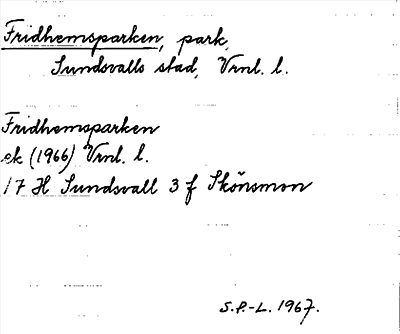 Fridhemsparken, park,
Sundsvalls stad, Vrnl. l.
Fridhemsparken
ek (1966) Vrnl. l.
17 H Sundsvall 3 f Skönsmon
S.P.-L. 1967.